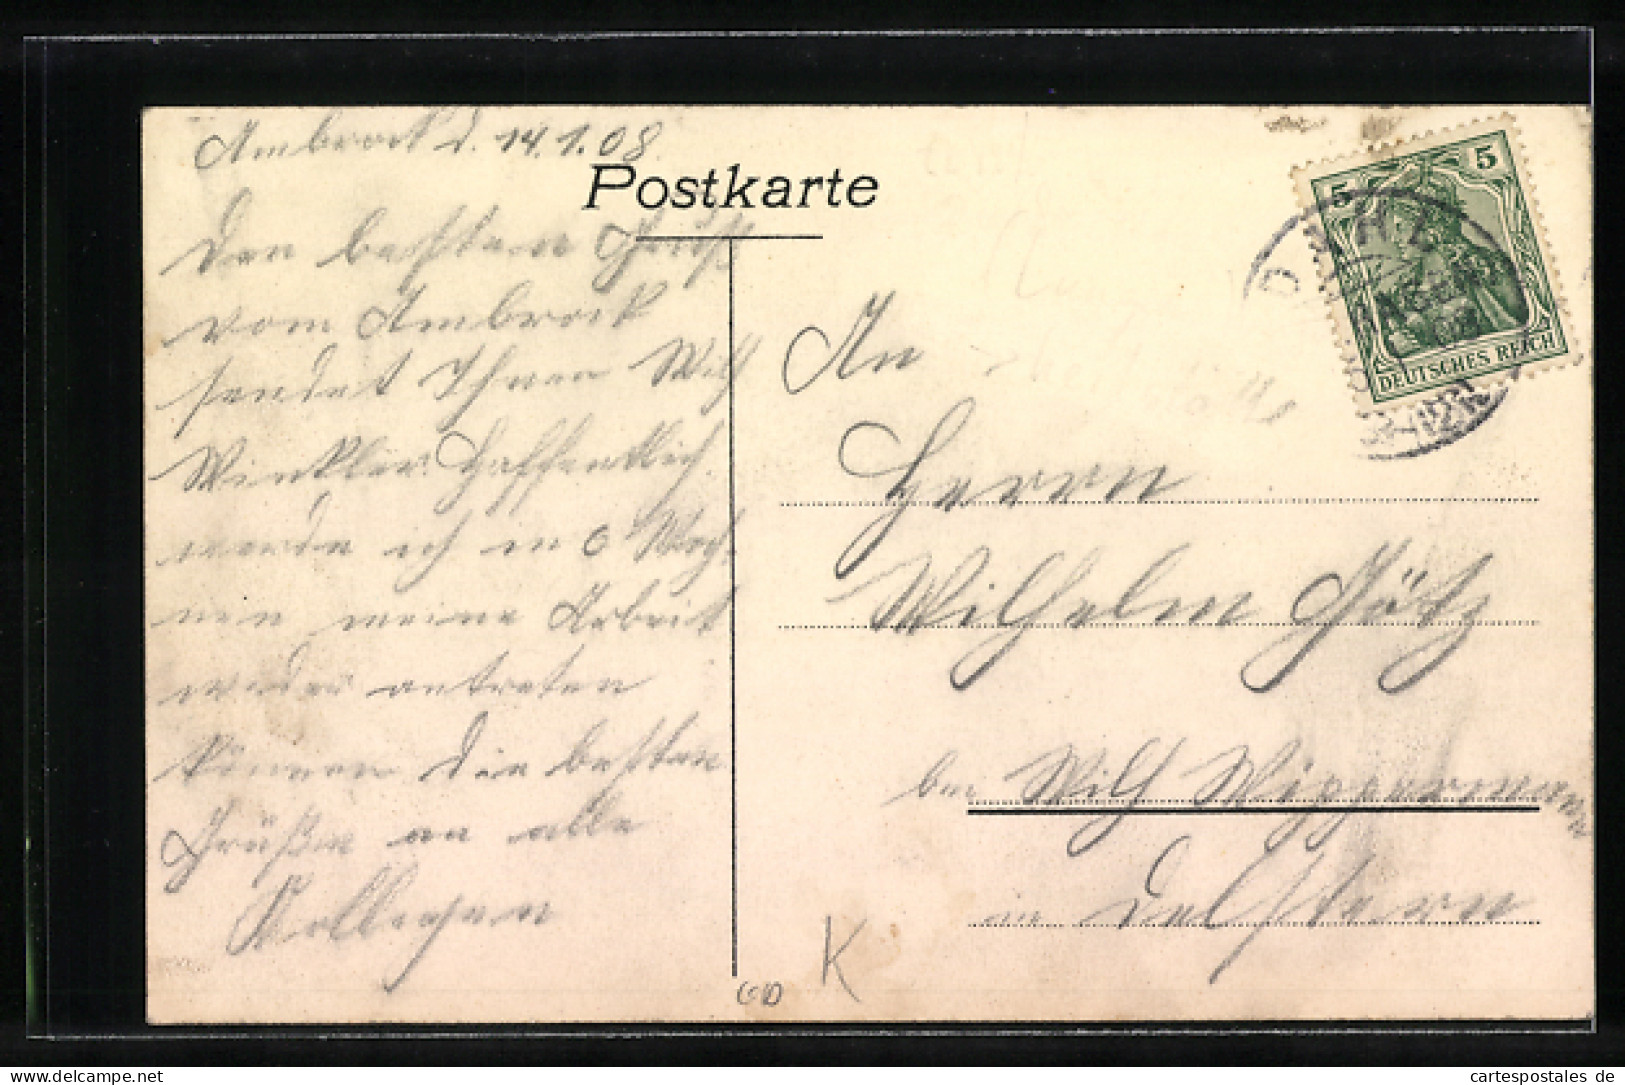 Ambrock d. 14.1.08
Postkarte
Den besten Gruß
vom Ambrock
sendet Ihnen Wilh
Winkler. Hoffentlich
werde ich in 6 Woch-
nen meine Arbeit
wieder antreten
können die besten
Grüße an alle
Kollegen
An
Herrn
Wilhelm Götz
bei Wilh Wippermann
in Delstern
K
GD
5 5
DEUTSCHES REICH
DAHL
delcampe.net
cartespostales de